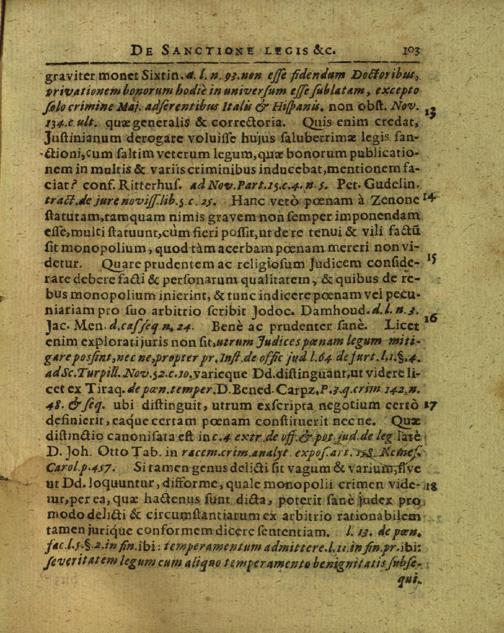 DE SANCTIONE LEGIS &c. 103
graviter monet Sixtin. d. l. n. 93. non esse fidendum Doctoribus,
privationem bonorum hodiè in universum esse sublatam, excepto
solo crimine Maj. adserentibus Italis & Hispanis, non obst. Nov.
134. c. ult. quæ generalis & correctoria. Quis enim credat, 13
Justinianum derogare voluisse hujus saluberrimæ legis san-
ctioni, cum saltim veterum legum, quæ bonorum publicatio-
nem in multis & variis criminibus inducebat, mentionem fa-
ciat? conf. Ritterhus. ad Nov. Part. 15. c. 4. n. 5. Pet. Gudelin.
tract. de jure noviss. lib. 5. c. 25. Hanc verò pœnam à Zenone 14
statutam, tamquam nimis gravem non semper imponendam
esse, multi statuunt, cum fieri possit, ut de re tenui & vili factũ
sit monopolium, quod tàm acerbam pœnam mereri non vi-
detur. Quare prudentem ac religiosum Judicem conside- 15
rare debere facti & personarum qualitatem, & quibus de re-
bus monopolium inierint, & tunc indicere pœnam vel pecu-
niariam pro suo arbitrio scribit Jodoc. Damhoud. d. l. n. 3.
Jac. Men. d. cas. seq. n. 24. Benè ac prudenter sanè. Licet 16
enim explorati juris non sit, utrum Judices pœnam legum miti-
gare possint, nec ne, propter pr. Inst. de offic jud l. 64 de furt. l. 1. §. 4.
ad Sc. Turpill. Nov. 52. c. 10. varieque Dd. distinguant, ut videre li-
cet ex Tiraq. de pœn. temper. D. Bened. Carpz. P. 3. q. crim 142. n.
48. & seq. ubi distinguit, utrum exscripta negotium certò 17
definierit, eaque certam pœnam constituerit nec ne. Quæ
distinctio canonisata est in c. 4 extr. de off. & pot jud. de leg latè
D. Joh. Otto Tab. in racem. crim. analyt. expos. art. 158.
Carol. p. 457. Si tamen genus delicti sit vagum & varium, sive
ut Dd. loquuntur, difforme, quale monopolii crimen vide- 18
tur, per ea, quæ hactenus sunt dicta, poterit sanè judex pro
modo delicti & circumstantiarum ex arbitrio rationabilem
tamen jurique conformem dicere sententiam. l. 13. de pœn.
fac. l. 5. §. 2. in fin. ibi: temperamentum admittere. l. 11. in fin. pr. ibi:
severitatem legum cum aliquo temperamento benignitatis subse-
qui.